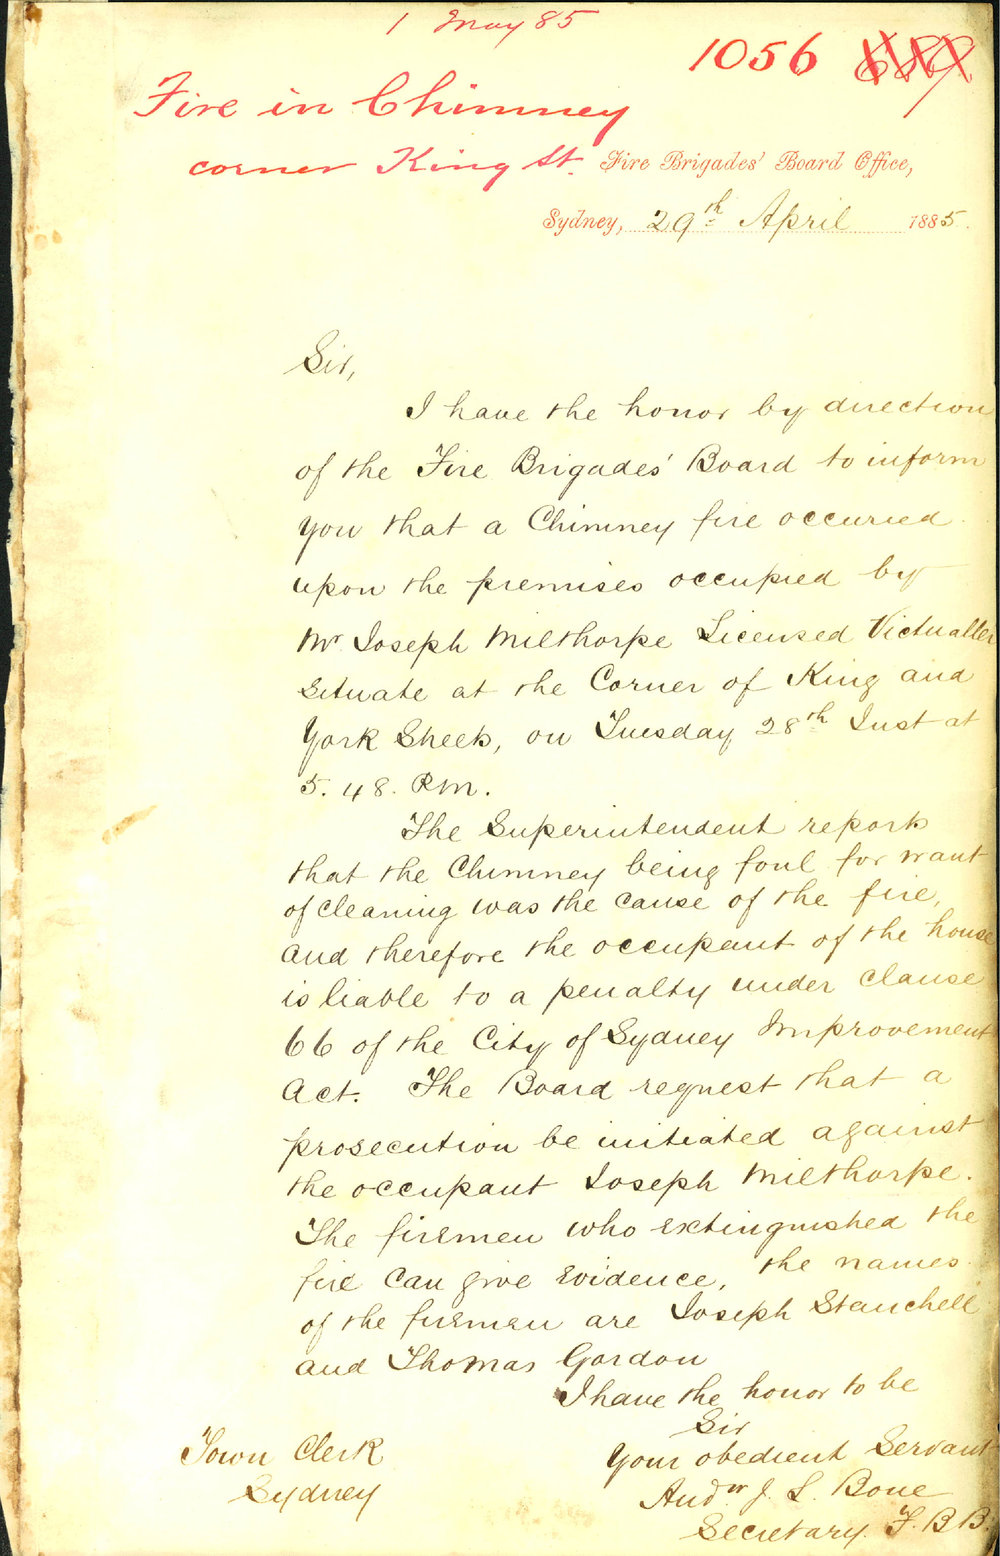 1 May 85
1056 689
Fire in Chimney
corner King St. Fire Brigades' Board Office,
Sydney, 29th April 1885.
Sir,
I have the honor by direction
of the Fire Brigades' Board to inform
you that a Chimney fire occurred
upon the premises occupied by
Mr Joseph Milthorpe Licensed Victualler
Situate at the Corner of King and
York Streets, on Tuesday 28th Inst at
5.48. P.M.
The Superintendent reports
that the Chimney being foul for want
of cleaning was the cause of the fire,
and therefore the occupant of the house
is liable to a penalty under clause
66 of the City of Sydney Improvement
Act. The Board request that a
prosecution be initiated against
the occupant Joseph Milthorpe.
The firemen who extinguished the
fire can give evidence, the names
of the firemen are Joseph Stanchell
and Thomas Gordon
I have the honor to be
Sir
Your obedient Servant
Town Clerk
Sydney
Andw J. L. Bone
Secretary. F.B.B.